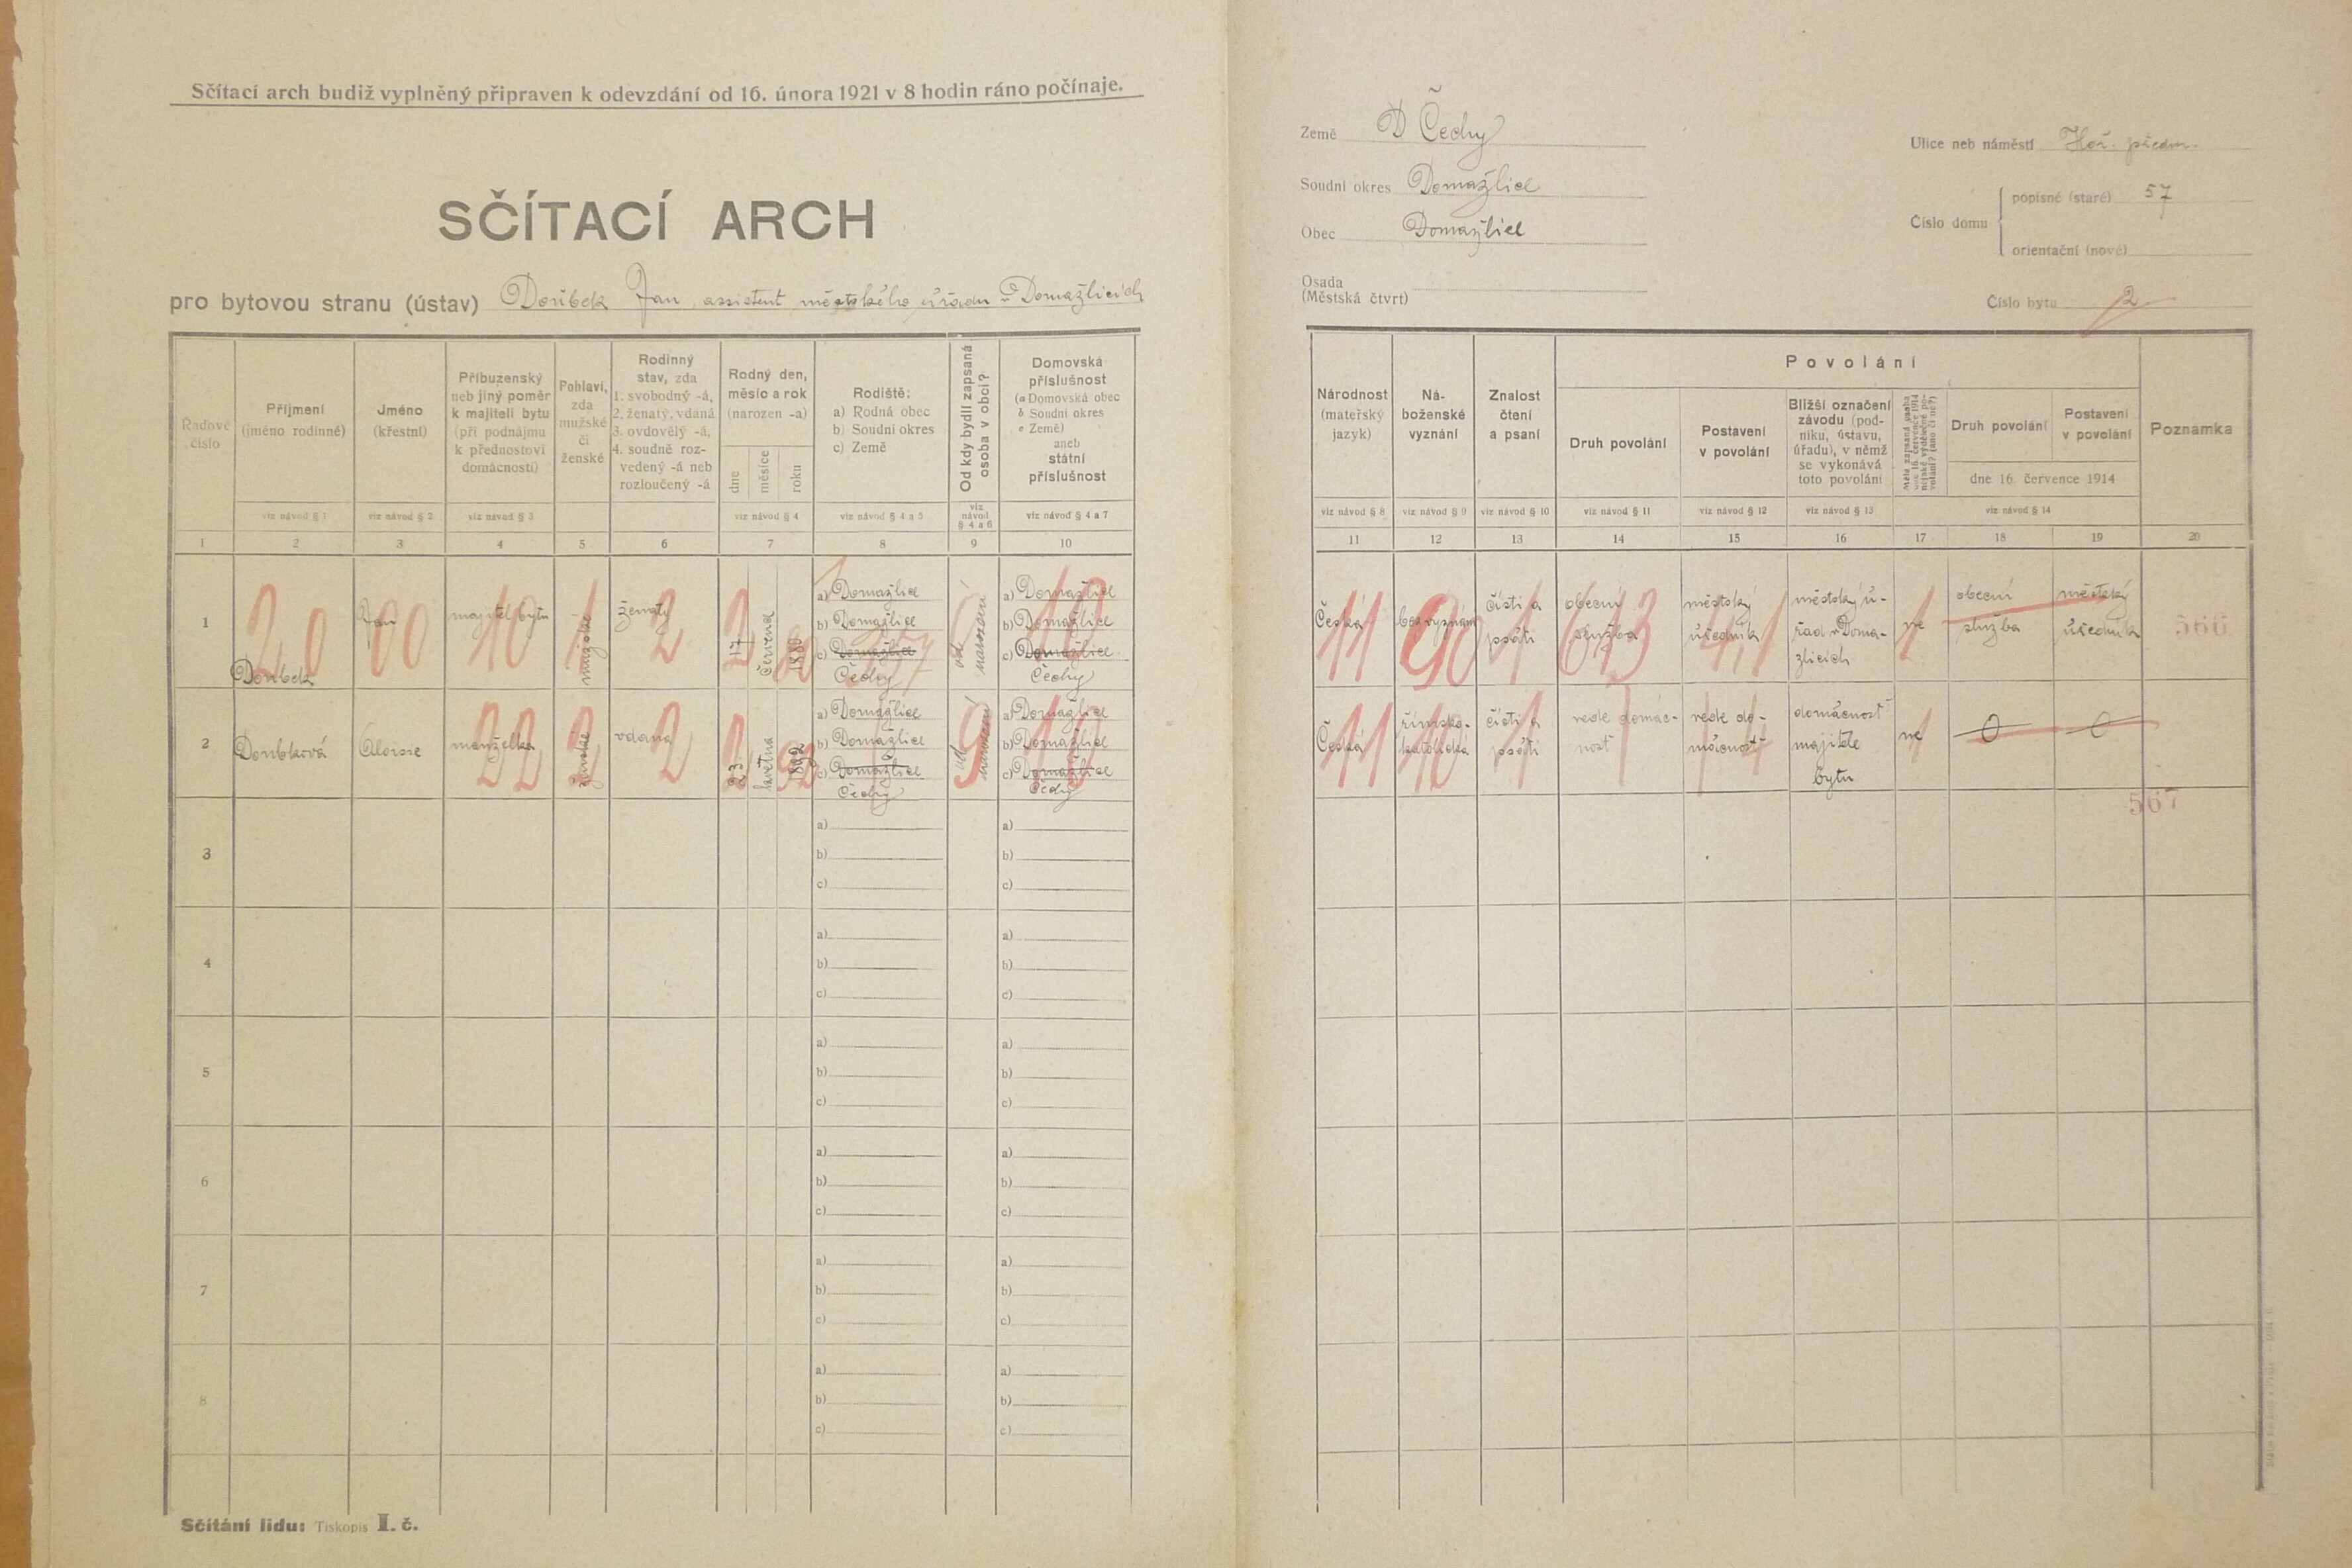 Sčítací arch budiž vyplněný připraven k odevzdání od 16. února 1921 v 8 hodin ráno počínaje.
SČÍTACÍ ARCH
pro bytovou stranu (ústav) Doubek Jan, assistent městského úřadu v Domažlicích
Řadové číslo
Příjmení (jméno rodinné)
Jméno (křestní)
Příbuzenský neb jiný poměr k majiteli bytu (při podnájmu k přednostovi domácnosti)
Pohlaví, zda mužské či ženské
Rodinný stav, zda 1. svobodný -á, 2. ženatý, vdaná 3. ovdovělý -á, 4. soudně rozvedený -á neb rozloučený -á
Rodný den, měsíc a rok (narozen -a)
dne
měsíce
roku
Rodiště:
a) Rodná obec
b) Soudní okres
c) Země
Od kdy bydlí zapsaná osoba v obci?
Domovská příslušnost (a Domovská obec b Soudní okres c Země) aneb státní příslušnost
viz návod § 1
viz návod § 2
viz návod § 3
viz návod § 4
viz návod § 4 a 5
viz návod § 4 a 6
viz návod § 4 a 7
1 2 3 4 5 6 7 8 9 10
1
Doubek
Jan
majitel bytu
mužské
ženatý
17
července
1880
a) Domažlice
b) Domažlice
c) Domažlice
Čechy
od narození
a) Domažlice
b) Domažlice
c) Domažlice
Čechy
2
Doubková
Aloisie
manželka
ženské
vdaná
23
května
892
a) Domažlice
b) Domažlice
c) Domažlice
Čechy
od narození
a) Domažlice
b) Domažlice
c) Domažlice
Čechy
3
a)
b)
c)
a)
b)
c)
4
a)
b)
c)
a)
b)
c)
5
a)
b)
c)
a)
b)
c)
6
a)
b)
c)
a)
b)
c)
7
a)
b)
c)
a)
b)
c)
8
a)
b)
c)
a)
b)
c)
Sčítání lidu: Tiskopis I. č.
Země Čechy
Soudní okres Domažlice
Obec Domažlice
Osada
(Městská čtvrt)
Ulice neb náměstí Hoř. předm.
Číslo domu
popisné (staré) 57
orientační (nové)
Číslo bytu 2
Národnost (mateřský jazyk)
Náboženské vyznání
Znalost čtení a psaní
Povolání
Druh povolání
Postavení v povolání
Bližší označení závodu (podniku, ústavu, úřadu), v němž se vykonává toto povolání
Měla zapsaná osoba dne 16. července 1914 nějaké výdělečné povolání? (ano či ne?)
Druh povolání
Postavení v povolání
dne 16. července 1914
Poznámka
viz návod § 8
viz návod § 9
viz návod § 10
viz návod § 11
viz návod § 12
viz návod § 13
viz návod § 14
11 12 13 14 15 16 17 18 19 20
Česká
bez vyznání
čísti a psáti
obecní služba
městský úředník
městský úřad v Domažlicích
ne
obecní služba
městský úředník
566
Česká
římsko-katolická
čísti a psáti
vede domácnost
vede domácnost
domácnost majitele bytu
ne
0
0
567